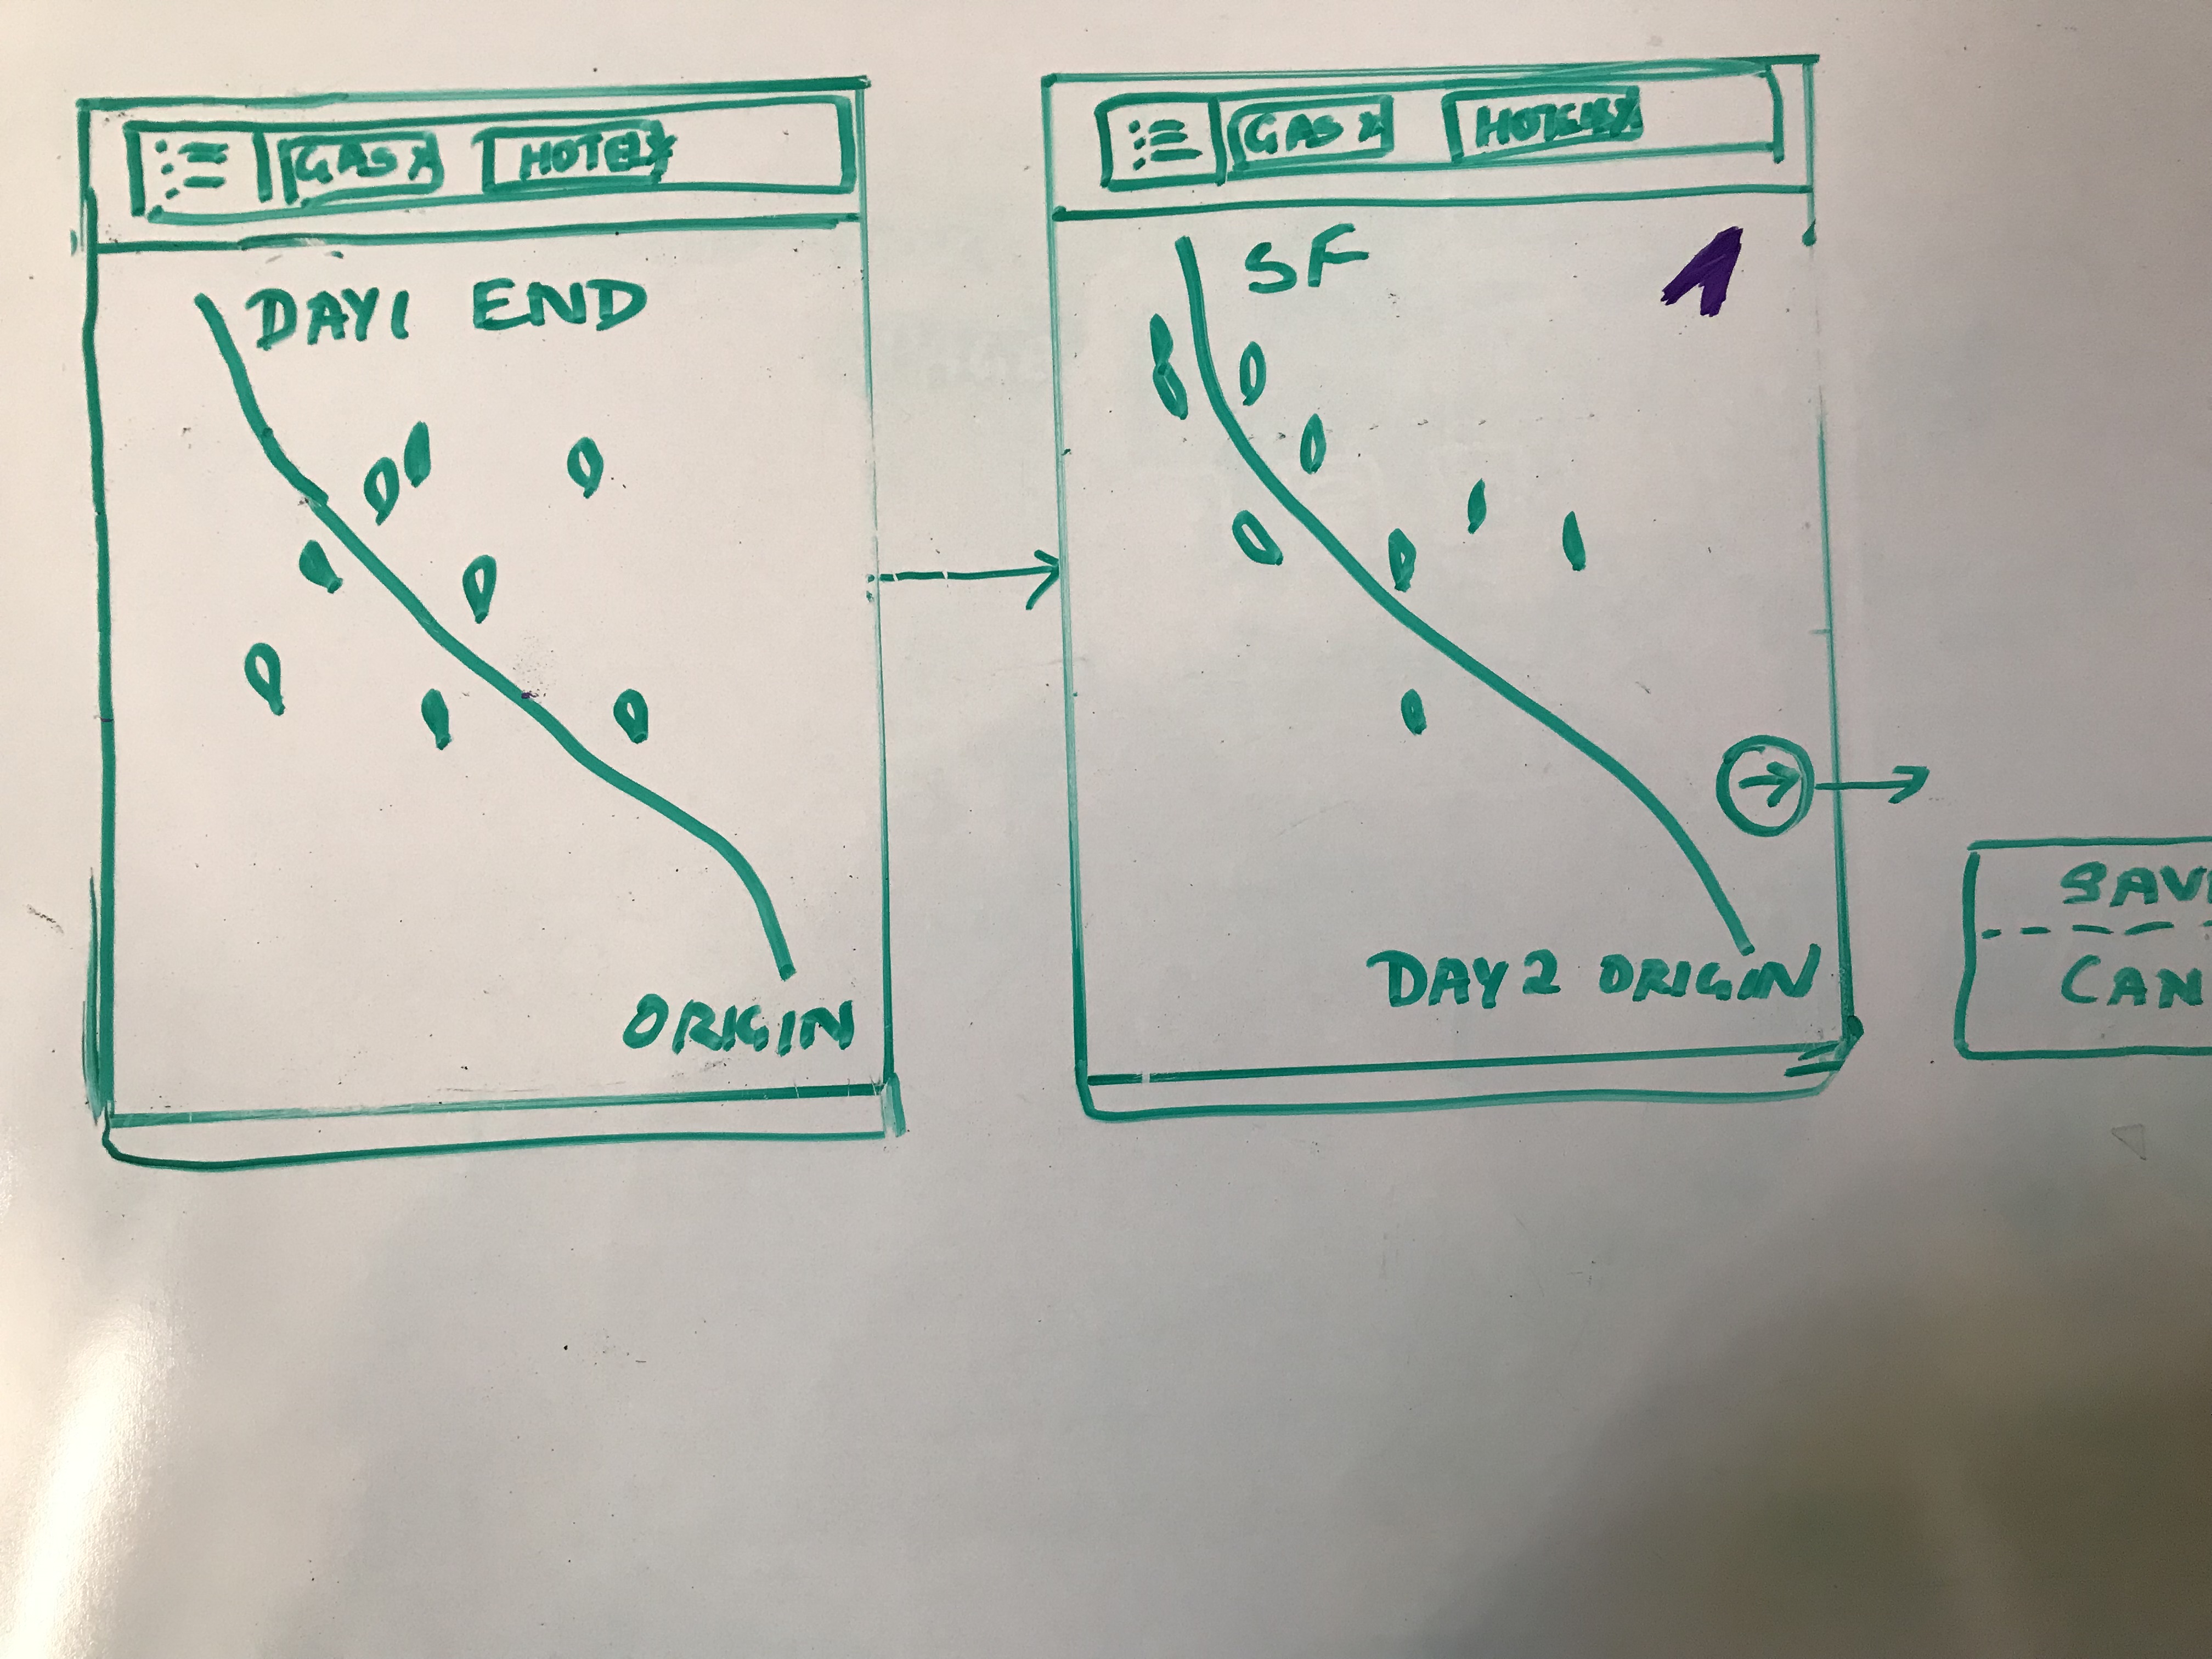 GAS X HOTEL X
DAY1 END
ORIGIN
GAS X HOTELS X
SF
1
DAY 2 ORIGIN
SAV
CAN